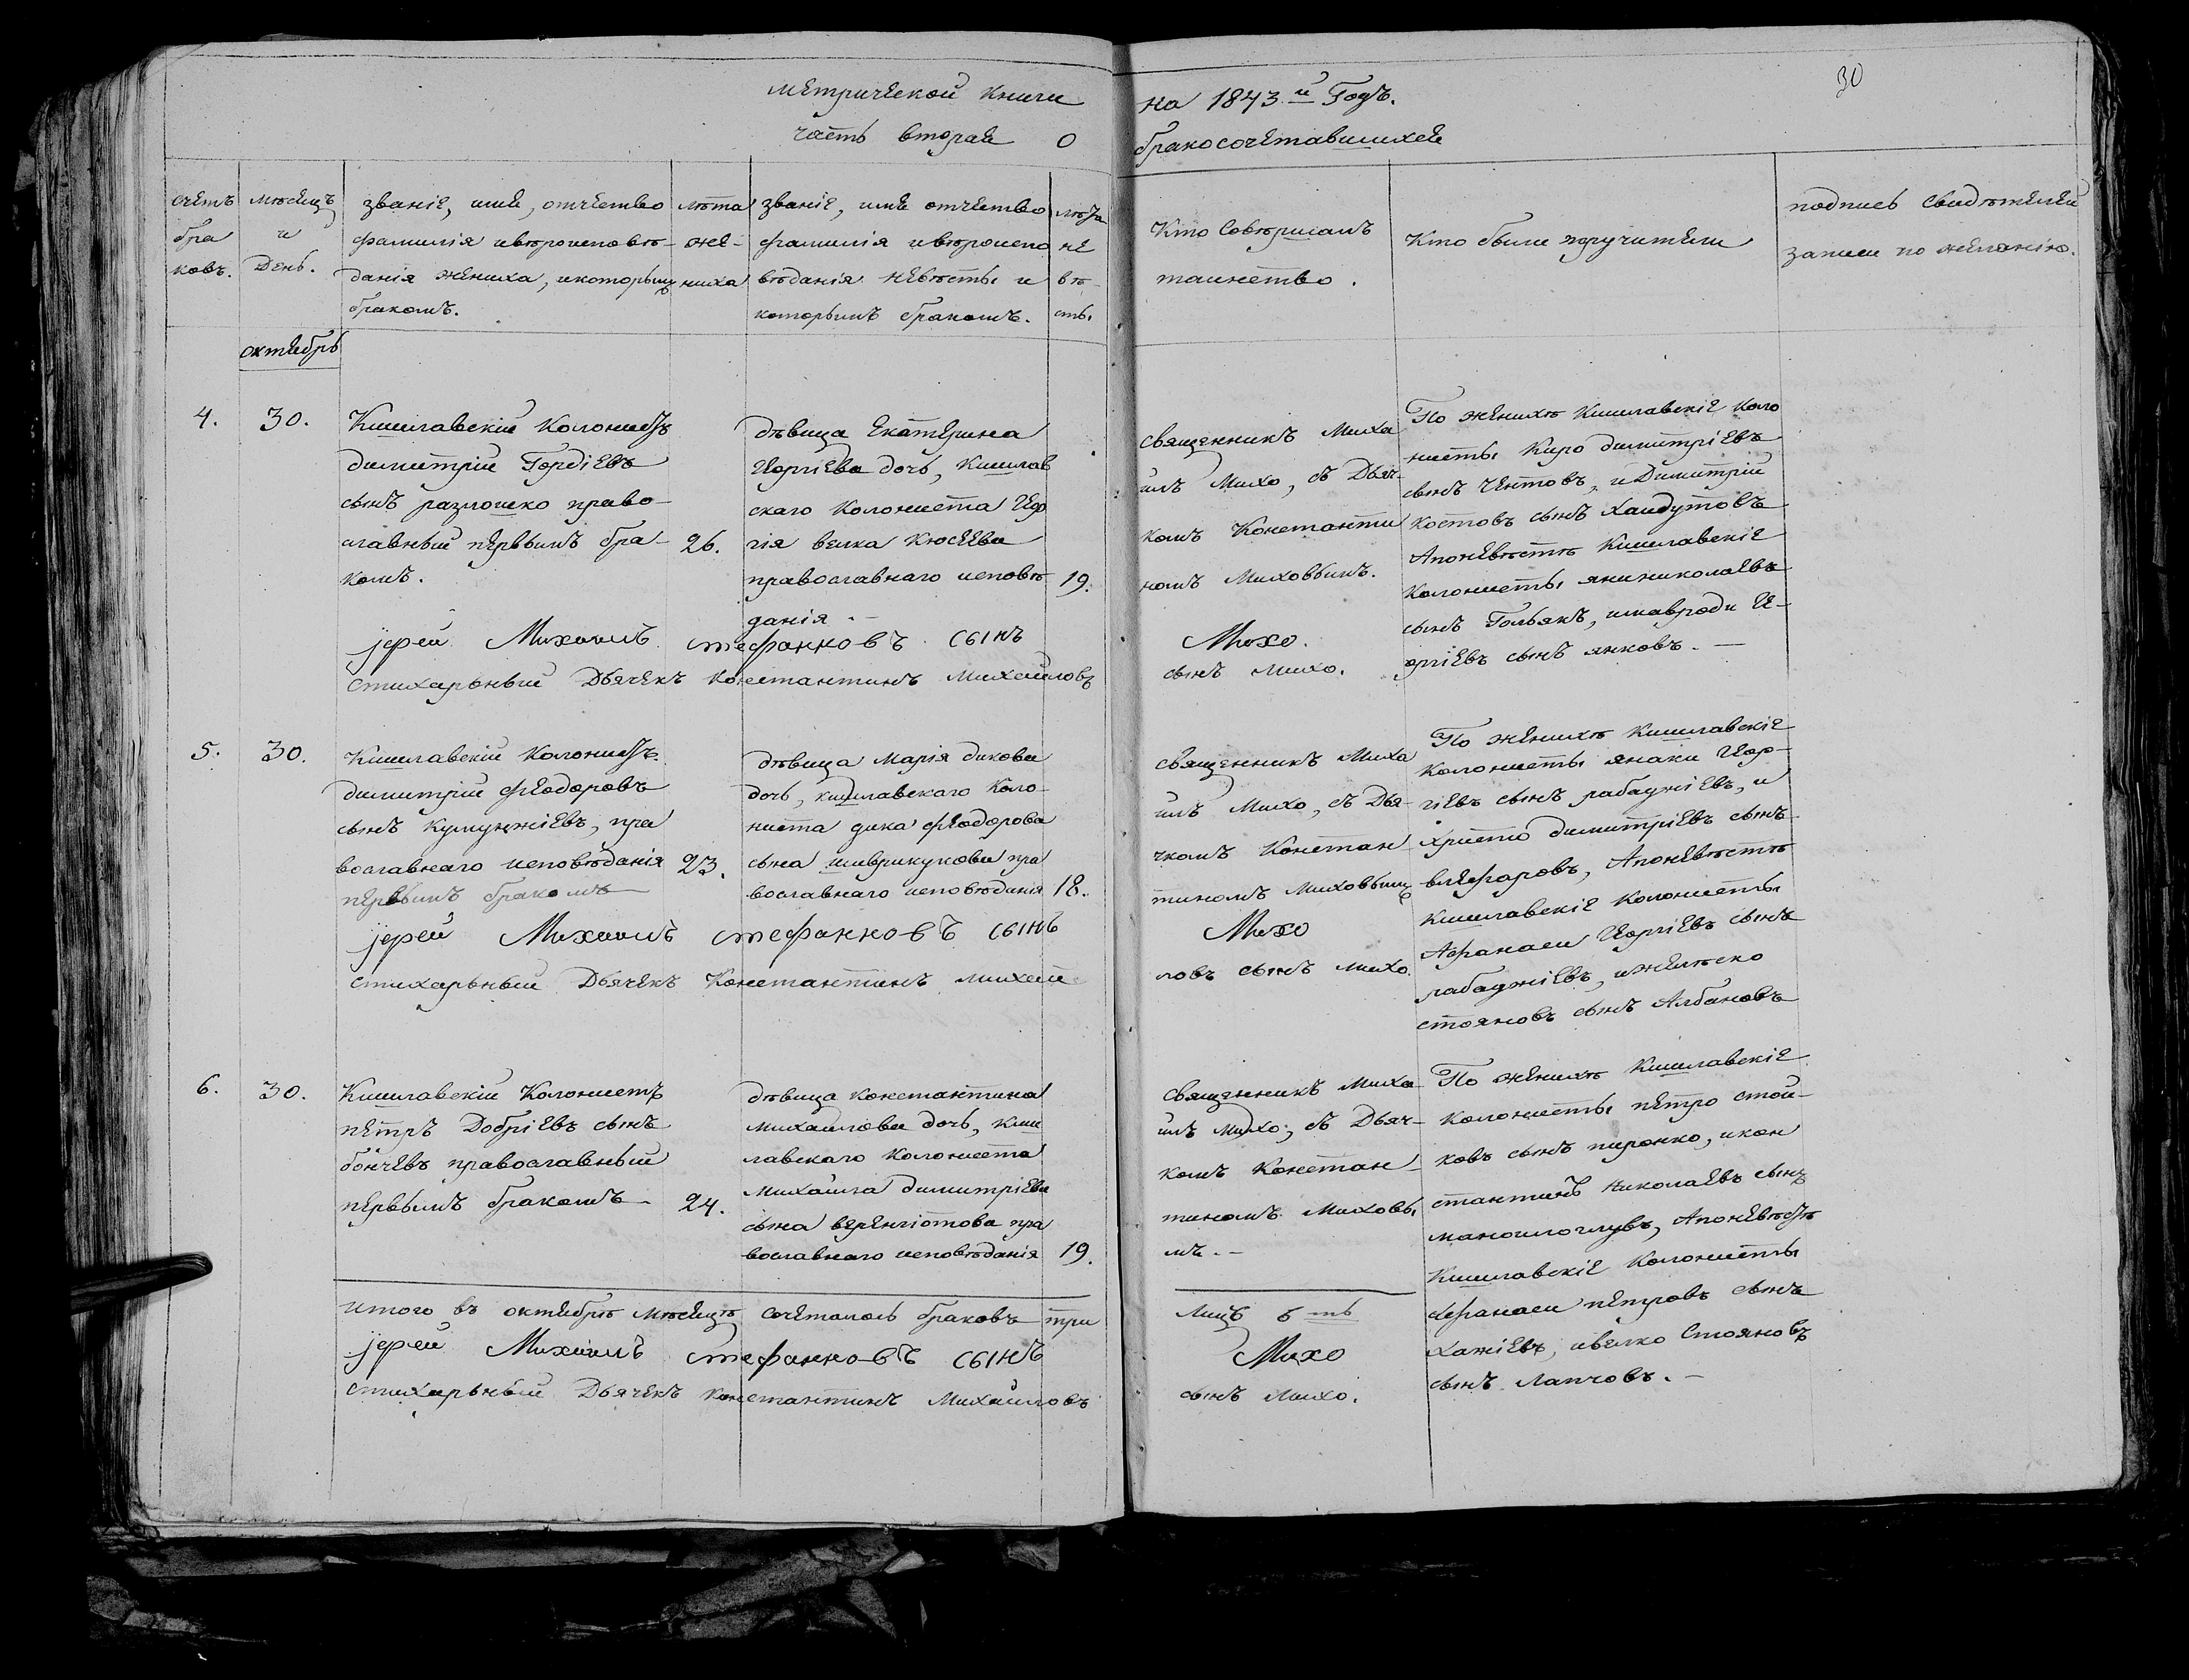 метрической книги на 1843й Годъ. 30
часть вторая О бракосочетавшихся
счетъ
бра
ковъ.
мѣсяцъ
и
День.
званіе, имя, отчество
фамилія и вѣроисповѣ-
данія жениха, и которымъ
бракомъ.
лѣта
же-
ниха
званіе, имя отчество
фамилія и вѣроиспо
вѣданія невѣсты и
которымъ бракомъ.
лѣта
не
вѣ-
сты
Кто Совершалъ
таинство.
Кто были поручители
подпись свидѣтелей
записи по желанію.
октябрь
4.
30.
Кишлавскій Колонистъ
димитрій Гордіевъ
сынъ разпошко право-
славный первымъ бра-
комъ.
26.
дѣвица Екатерина
Георгіева дочь, Кишлав
скаго Колониста Геор
гія велка Кюсеева
православнаго исповѣ
данія.-
19.
священникъ Миха
илъ Михо, съ Дьяч-
комъ Константи
номъ Миховымъ.
По женихѣ Кишлавскіе коло
нисты Киро димитріевъ
сынъ Чентовъ, и Димитрій
костовъ сынъ хаидутовъ
А по невѣстѣ Кишлавскіе
Колонисты яни николаевъ
сынъ Гольякъ, и мавроди Ге-
оргіевъ сынъ янковъ.-
іерей Михаилъ стефанковъ сынъ Михо.
стихарьный Дьячекъ Константинъ Михайловъ сынъ Михо.
5.
30.
Кишлавскій Колонистъ
димитрій феодоровъ
сынъ Куюмжіевъ, пра
вославнаго исповѣданія
первымъ бракомъ
23.
дѣвица марія дикова
дочь, кишлавскаго Коло-
ниста дика феодорова
сына шаврикукова пра
вославнаго исповѣданія
18.
священникъ Миха
илъ Михо, съ Дья-
чкомъ Констан
тиномъ Миховымъ
По женихѣ Кишлавскіе
Колонисты янаки Геор-
гіевъ сынъ рабаджіевъ, и
христо димитріевъ сынъ
влефаровъ, А по невѣстѣ
Кишлавскіе Колонисты
Афанаси Георгіевъ сынъ
рабаджіевъ, и желѣско
стояновъ сынъ Албановъ
іерей Михаилъ стефанковъ сынъ Михо
стихарьный Дьячекъ Константинъ михай ловъ сынъ михо.
6.
30.
Кишлавскій Колонистъ
петръ Добріевъ сынъ
бончевъ православный
первымъ бракомъ
24.
дѣвица константина
михаилова дочь, киш
лавскаго Колониста
Михаила димитріева
сына веренгіотова пра
вославнаго исповѣданія
19.
священникъ Миха
илъ михо, съ Дьяч-
комъ Констан
тиномъ Миховы
мъ.-
По женихѣ Кишлавскіе
колонисты петро стой-
ковъ сынъ пиронко, и кон
стантинъ николаевъ сынъ
манологлувъ, А по невѣстѣ
Кишлавскіе Колонисты
Афанаси петровъ сынъ
хажіевъ, и велко Стояновъ
сынъ Лапчовъ.-
итого въ октябрѣ мѣсяцѣ сочеталось браковъ три Лицъ 6ть
іерей Михаилъ стефанковъ сынъ Михо
стихарьный Дьячекъ константинъ Михайловъ сынъ Михо.